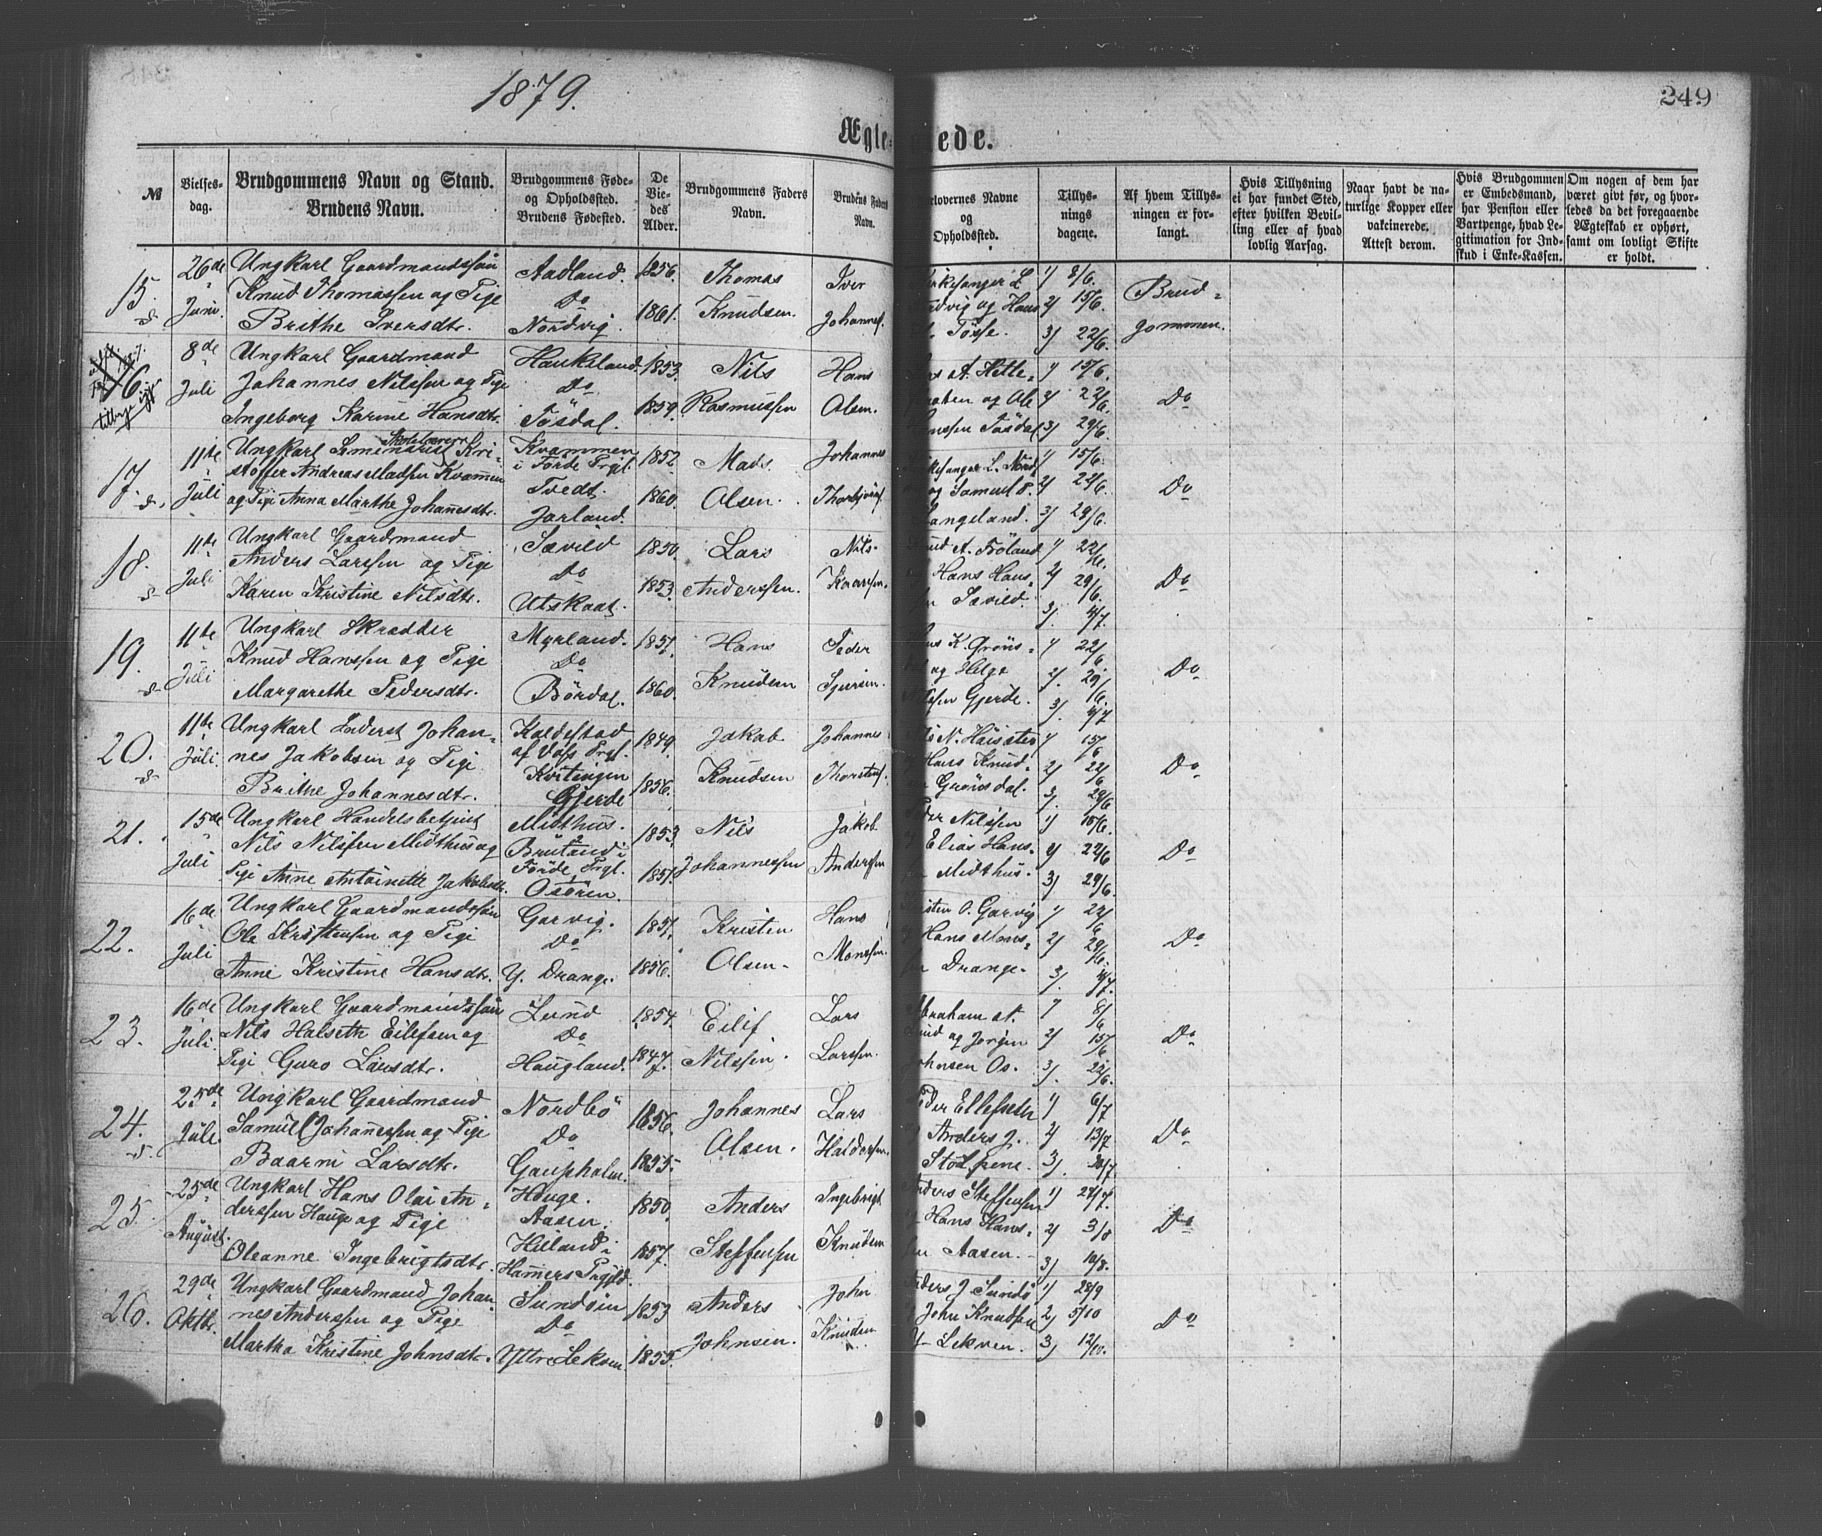 1879.
249
Ægte- ede.
№
Vielses-
dag.
Brudgommens Navn og Stand.
Brudens Navn.
Brudgommens Føde-
og Opholdssted.
Brudens Fødested.
De
Vie-
des
Alder.
Brudgommens Faders
Navn.
Brudens Faders
Navn.
rlovernes Navne
og
Opholdssted.
Tillys-
nings
dagene.
Af hvem Tillys-
ningen er for-
langt.
Hvis Tillysning
ei har fundet Sted,
efter hvilken Bevil-
ling eller af hvad
lovlig Aarsag.
Naar havt de na-
turlige Kopper eller
vakcinerede.
Attest derom.
Hvis Brudgommen
er Embedsmand,
har Pension eller
Vartpenge, hvad Le-
gitimation for Ind-
skud i Enke-Kassen.
Om nogen af dem har
været givt før, og hvor-
ledes da det foregaaende
Ægteskab er ophørt,
samt om lovligt Skifte
er holdt.
15.
26de
Juni
Ungkarl Gaardmandssøn
Knud Thomassen og Pige
Brithe Iversdtr.
Aadland.
Do
Nordvig.
1856.
1861.
Thomas
Knudsen.
Iver
Johannes.
irkesanger L.
rdvig og Hans
Tøsse.
1) 8/6.
2) 15/6.
3) 22/6.
Brud-
gommen.
16.
8de
Juli
Ungkarl Gaardmand
Johannes Nilssen og Pige
Ingeborg Karine Hansdtr.
Haukeland.
Do
Tøsdal.
1853.
1859.
Nils
Rasmussen
Hans
Olsen.
A. Hette-
og Ole
nssen Tøsdal
1) 15/6.
2) 22/6.
3) 29/6.
Do
17.
11te
Juli
Skolelærer
Ungkarl Seminarist Kri-
stoffer Andreas Madsen Kvammen
og Pige Anna Marthe Johannesdtr.
Kvammen
i Førde Prgl.
Tvedt.
Jarland.
1852.
1860.
Mads
Olsen.
Johannes
kesanger L. Nord
og Samuel P.
angeland.
1) 15/6.
2) 22/6.
3) 29/6.
Do
18.
11te
Juli
Ungkarl Gaardmand
Anders Larssen og Pige
Karen Kristine Nilsdtr.
Sævild
Do
Utskaat.
1850.
1853.
Lars
Anderssen.
Nils
Knud A. Frøland
Hans Hans-
Sævild.
1) 22/6
2) 29/6.
3) 4/7.
Do
19.
11te
Juli
Ungkarl Skrædder
Knud Hanssen og Pige
Margarethe Pedersdtr.
Myrland.
Do
Børdal.
1857.
1860.
Hans
Knudsen
Peder
Sjursen.
K. Grøns-
og Helge
Gjerde.
1) 22/6
2) 29/6
3) 4/7
Do
20.
11te
Juli
Ungkarl Inderst Johan-
nes Jakobsen og Pige
Brithe Johannesdtr.
Kaldestad
af Voss Prgl.
Kvitingen
Gjerde
1849.
1856.
Jakob
Knudsen
Johannes
Hans Knud-
Grønsdal.
1) 15/6
2) 22/6
3) 29/6
Do
21.
15de
Juli
Ungkarl Handelsbetjent
Nils Nilssen Midthus og
Pige Anne Antoinette Jakobsdtr.
Midthus.
Bruland i
Førde Prgl.
Osøren.
1853.
1857.
Nils
Johannessen
Jakob
Anderssen
Peder Nilssen
Elias Hans-
Midthus.
1) 15/6.
2) 22/6
3) 29/6.
Do
22.
16de
Juli
Ungkarl Gaardmandssøn
Ole Kristensen og Pige
Anne Kristine Hansdtr.
Garvig.
Do
Y. Drange.
1857.
1856.
Kristen
Olsen.
Hans
Monssen.
isten O. Garvig
Hans Mons-
Drange.
1) 22/6
2) 29/6.
3) 4/7.
Do
23.
16de
Juli
Ungkarl Gaardmandssøn
Nils Halseth Eilefsen og
Pige Guro Larsdtr.
Lund
Do
Haugland.
1854.
1847.
Eilif
Nilssen.
Lars
Larssen.
Abraham A.
og Jørgen
Johnsen Os.
1 8/6
2) 15/6
3) 22/6.
Do
24.
25de
Juli
Ungkarl Gaardmand
Samuel Johannessen og Pige
Baarni Larsdtr.
Nordbø
Do
Gaupholm.
1856.
1855.
Johannes
Olsen.
Lars
Haldorsen.
Peder Ellefseth
Anders J.
1) 6/7
2) 13/7
3) 20/7
Do
25.
25de
August.
Ungkarl Hans Olai An-
derssen Hauge og Pige
Oleanne Ingebrigtsdtr.
Hauge.
Aasen.
Hilland i
Hammers Prgjld.
1850.
1857.
Anders
Steffensen
Ingebrigt
Knudsen
Anders Steffensen
Hans Hans-
Aasen.
1) 27/7.
2) 3/8
3) 10/8.
Do
26.
29de
Oktbr.
Ungkarl Gaardmand Johan-
nes Anderssen og Pige
Martha Kristine Johnsdtr.
Sundøen
Do
Yttre Lekven.
1853
1855.
Anders
Johnsen.
John
Knudsen
Anders J. Sundø
John Knudsen
Lekven.
1) 28/9
2) 5/10
3) 12/10.
Do